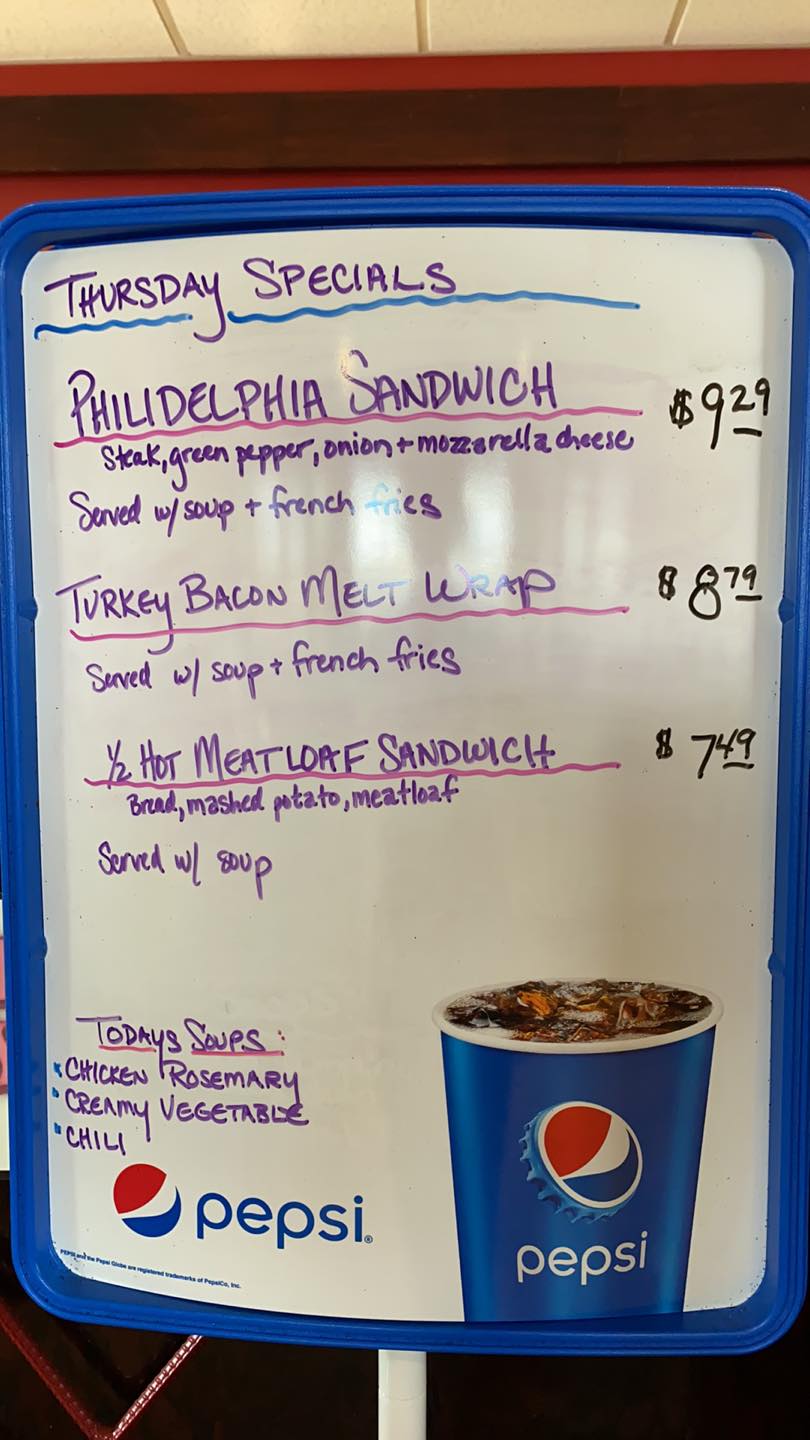 THURSDAY SPECIALS
PHILIDELPHIA SANDWICH $9 29
Steak, green pepper, onion + mozzarella cheese
Served w/ soup + french fries
TURKEY BACON MELT WRAP $8 79
Served w/ soup + french fries
1/2 HOT MEATLOAF SANDWICH $7 49
Bread, mashed potato, meatloaf
Served w/ soup
TODAYS SOUPS:
CHICKEN ROSEMARY
CREAMY VEGETABLE
CHILI
pepsi®
PEPSI and the Pepsi Globe are registered trademarks of PepsiCo, Inc.
pepsi